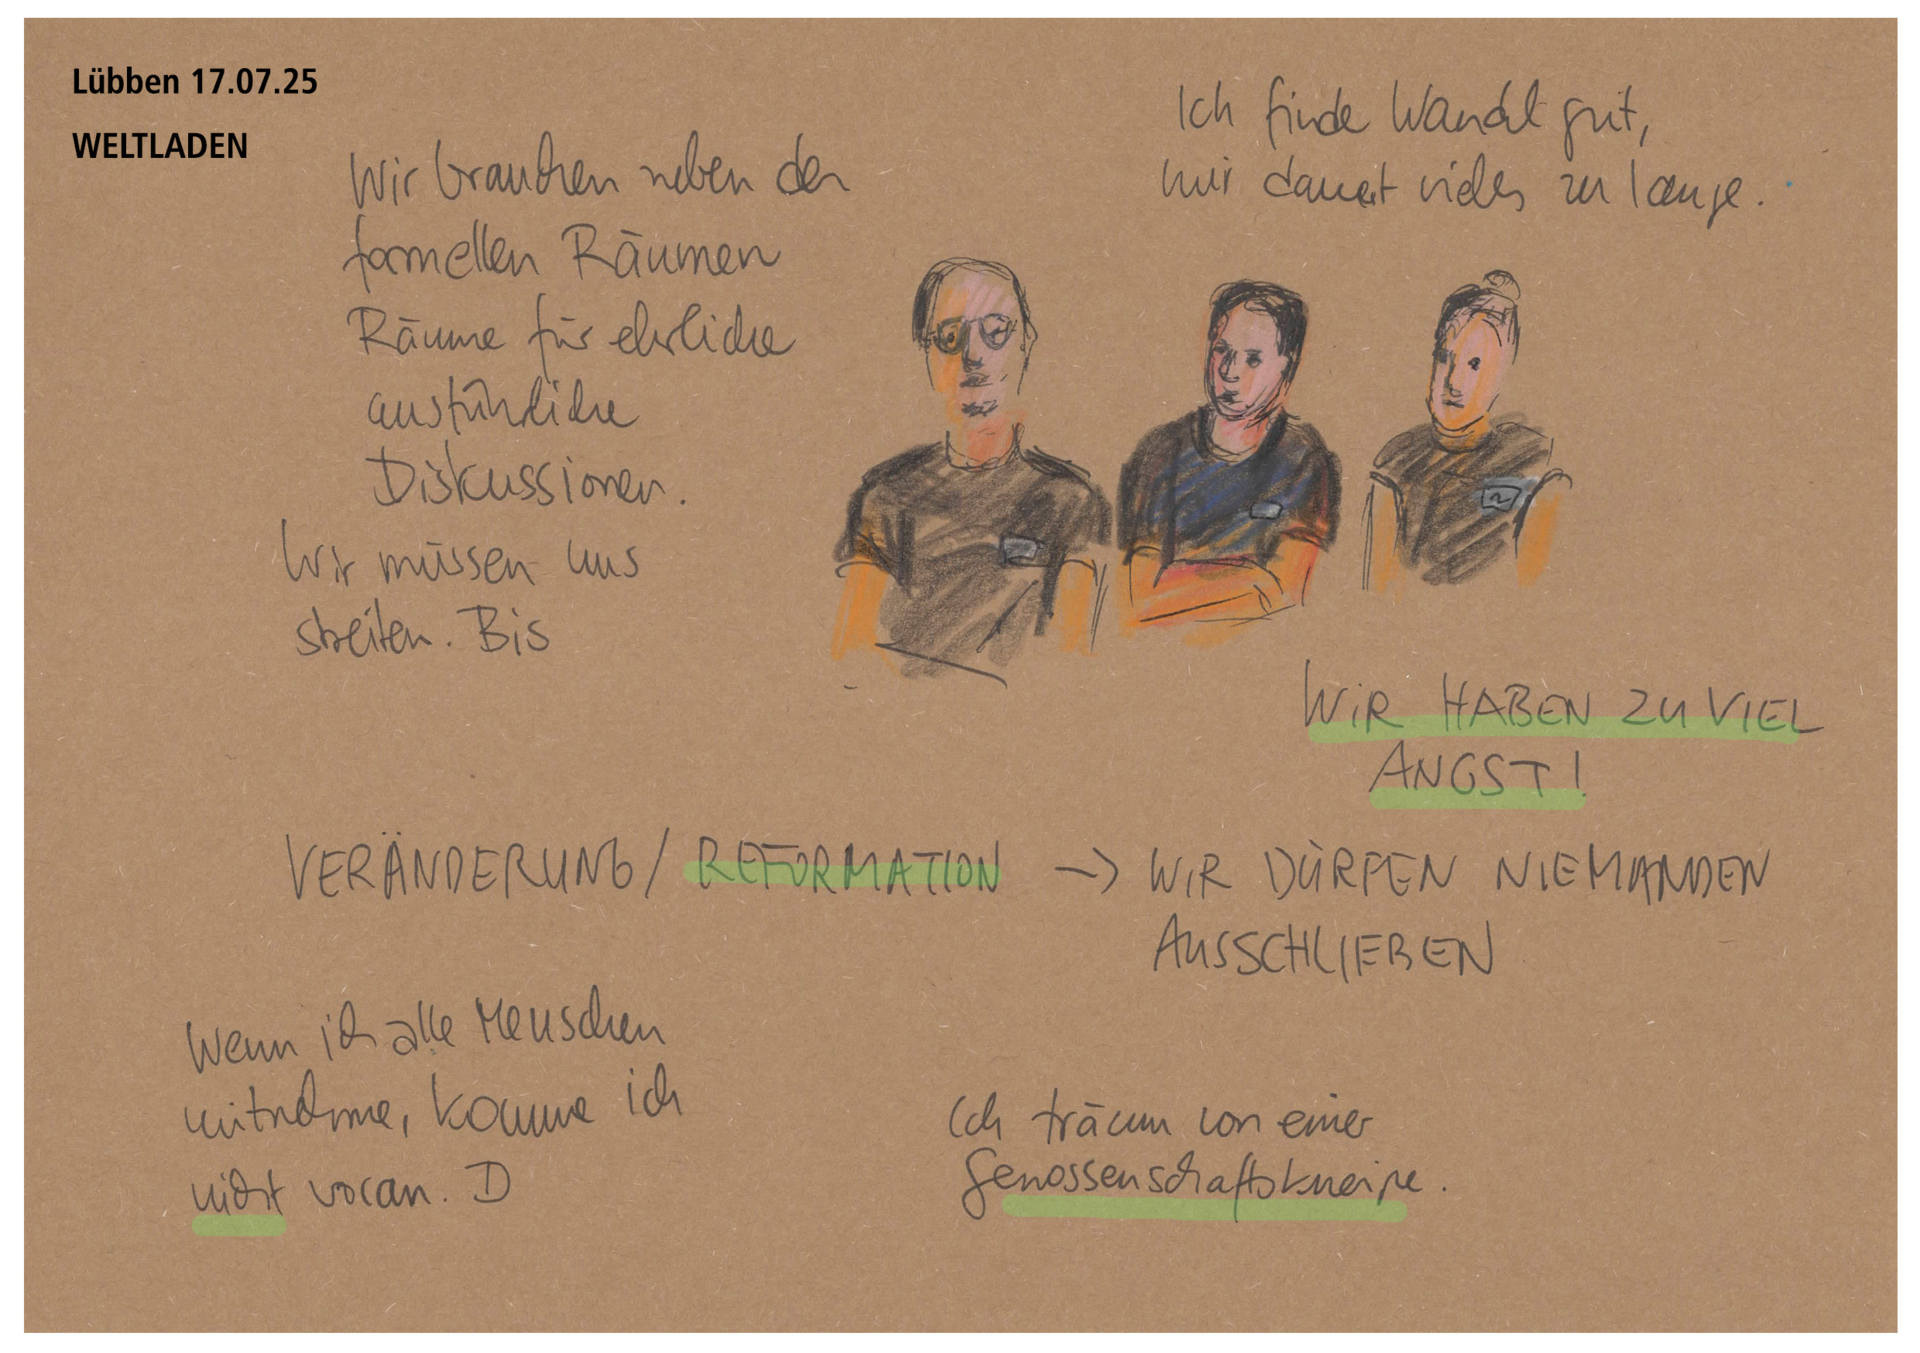 Lübben 17.07.25
WELTLADEN
Wir brauchen neben den
formellen Räumen
Räume für ehrliche
ausführliche
Diskussionen.
Wir müssen uns
streiten. Bis
Ich finde Wandel gut,
mir dauert vieles zu lange.
WIR HABEN ZU VIEL
ANGST!
VERÄNDERUNG/REFORMATION -> WIR DÜRFEN NIEMANDEN
AUSSCHLIEßEN
Wenn ich alle Menschen
mitnehme, komme ich
nicht voran. D
Ich träum von einer
Genossenschaftskneipe.